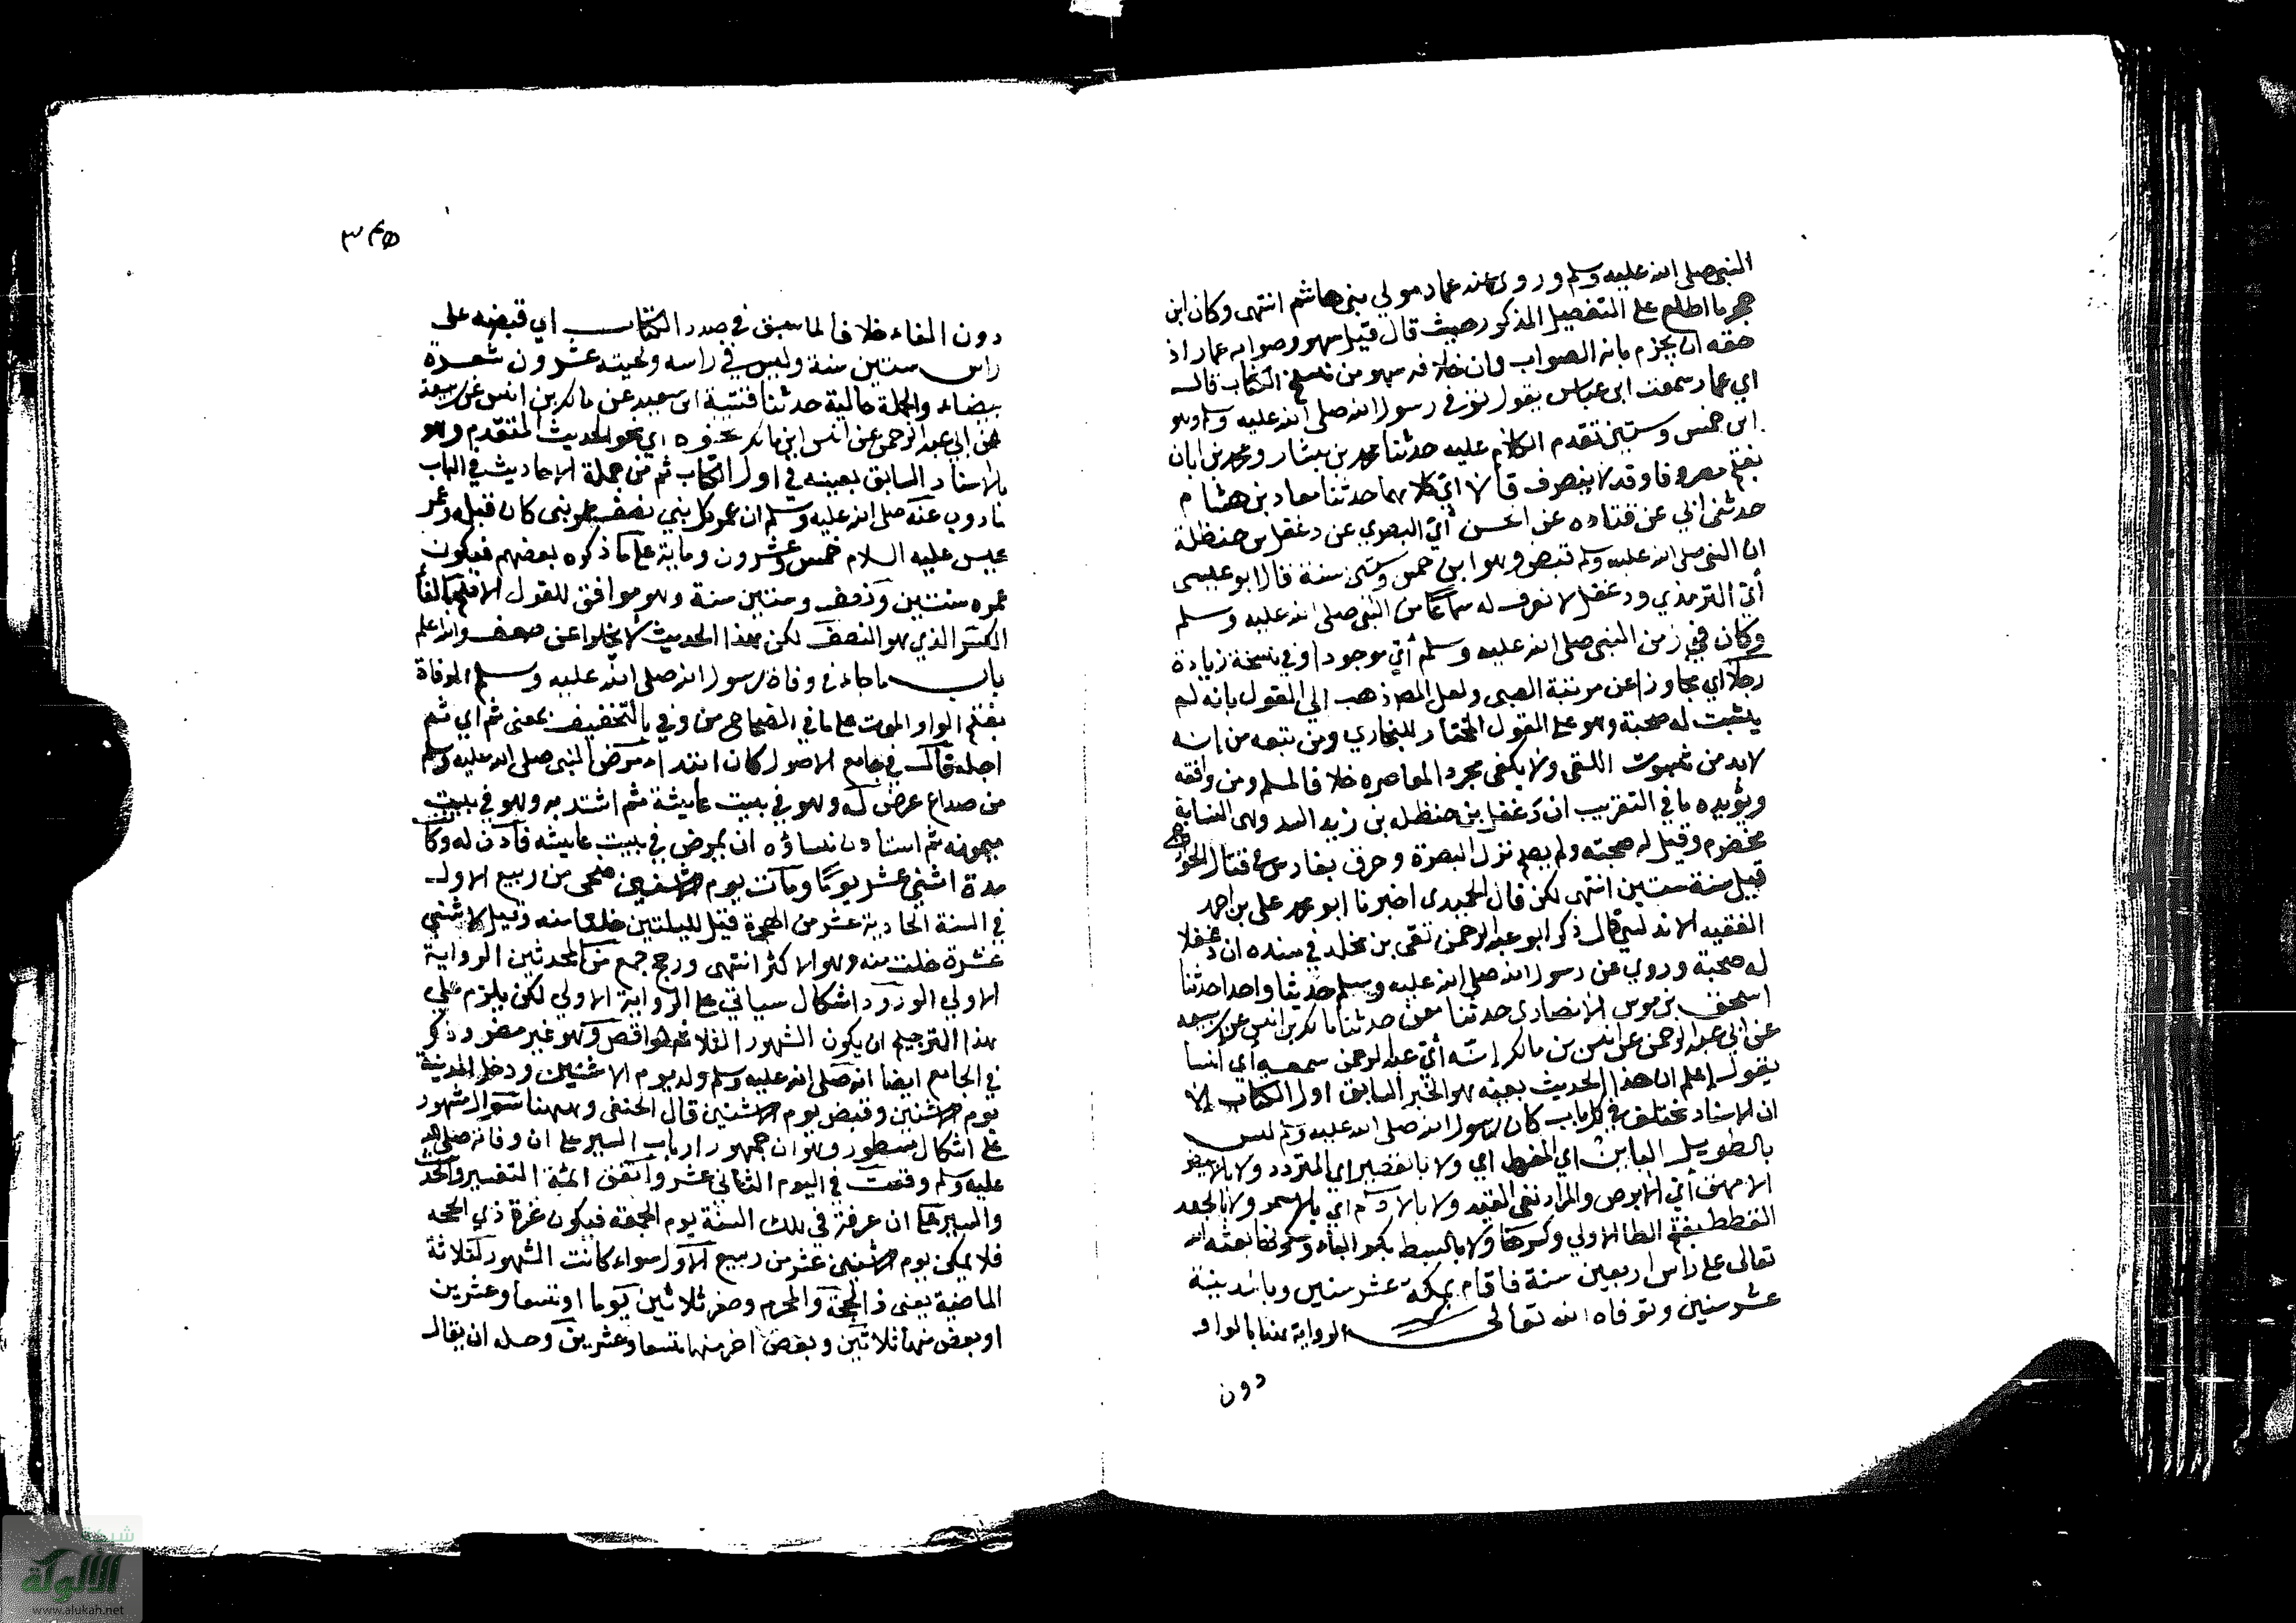 النبي صلى الله عليه وسلم وروى عنه عمار مولى بني هاشم انتهى وكان ابن
حجر ما اطلع على التفصيل المذكور حيث قال قيل سهو وصوابه عمار اذ
حقه ان يجزم بانه الصواب وان خلافه سهو من الكتاب قال
اي عمار سمعت ابن عباس يقول توفي رسول الله صلى الله عليه وسلم وهو
ابن خمس وستين تقدم الكلام عليه حدثنا محمد بن بشار ومحمد بن ابان
بفتح مصروفا وقد لا ينصرف قالا اي كلاهما حدثنا معاذ بن هشام
حدثني ابي عن قتادة عن الحسن أي البصري عن دغفل بن حنظلة
ان النبي صلى الله عليه وسلم قبض وهو ابن خمس وستين سنة قال ابو عيسى
أي الترمذي ودغفل لا نعرف له سماعا من النبي صلى الله عليه وسلم
وكان في زمن النبي صلى الله عليه وسلم أي موجودا وفي نسخة زيادة
رجلا اي مجاوزا عن مرتبة الصبى ولعل المص ذهب الى القول بانه لم
يثبت له صحبة وهو على القول المختار للبخاري ومن تبعه من انه
لابد من ثبوت اللقى ولا يكفى مجرد المعاصره خلافا لمسلم ومن وافقه
ويؤيده ما في التقريب ان دغفل بن حنظله بن زيد النسابة
مخضرم وقيل له صحبته ولم يصح نزل البصرة وغرق بفارس في قتال الخوارج
قبل سنة ستين انتهى لكن قال الحميدي اخبرنا ابو محمد على بن احمد
الفقيه الاندلسي قال ذكر ابو عبد الرحمن بقى بن مخلد في مسنده ان دغفلا
له صحبة وروي عن رسول الله صلى الله عليه وسلم حديثا واحدا حدثنا
اسحق بن موسى الانصاري حدثنا معن حدثنا مالك بن انس عن ربيعه
عن ابي عبد الرحمن عن انس بن مالك انه أي عبد الرحمن سمعه أي أنسا
يقول إعلم ان هذا الحديث بعينه هو الخبر السابق اول الكتاب الا
ان الاسناد مختلف في كل باب كان رسول الله صلى الله عليه وسلم ليس
بالطويل البائن اي المفرط اي ولا بالقصير اي المتردد ولا بالابيض
الامهق أي الابرص والمراد نفى القيد ولا بالادم اي بالاسمر ولا بالجعد
القطط بفتح الطا الاولي وكسرها ولا بالسبط بكسر الباء وسكونها بعثه الله
تعالى على راس اربعين سنة فاقام بمكة عشر سنين وبالمدينة
عشر سنين وتوفاه الله تعالى الرواية هنا بالواو
دون
٣٤٥
دون الفاء خلافا لما سبق في صدر الكتاب اي قبضه على
راس ستين سنة وليس في راسه ولحيته عشرون شعرة
بيضاء والجملة حالية حدثنا قتيبة ابن سعيد عن مالك بن انس عن ربيعة
بن ابي عبد الرحمن عن انس ابن مالك نحوه اي نحو الحديث المتقدم وهو
بالاسناد السابق بعينه في اول الكتاب ثم من جملة الاحاديث في الباب
ما روي عنه صلى الله عليه وسلم ان عمر كل نبي نصف عمر نبي كان قبله وعمر
عيسى عليه السلام خمس وعشرون وماية على ما ذكره بعضهم فيكون
عمره سنتين ونصف وستين سنة وهو موافق للقول الاصح بالغاء
الكسر الذي هو النصف لكن هذا الحديث لا يخلوا عن ضعف والله اعلم
باب ما جاء في وفاة رسول الله صلى الله عليه وسلم الوفاة
بفتح الواو الموت على ما في الصحاح من وفي بالتخفيف بمعنى تم اي تم
اجله قال في جامع الاصول كان ابتداء مرض النبي صلى الله عليه وسلم
من صداع عرض له وهو في بيت عايشة ثم اشتد به وهو في بيت
ميمونه ثم استأذن نساؤه ان يمرض في بيت عايشه فأذن له وكان
مدة اثني عشر يوما ومات يوم الاثنين ضحى من ربيع الاول
في السنة الحادية عشر من الهجرة قيل لليلتين خلتا منه وقيل لاثنتي
عشرة خلت منه وهو الاكثر انتهى ورجح جمع من المحدثين الرواية
الاولي الورود اشكال سياتي على الرواية الاولي لكن يلزم على
هذا الترجيح ان يكون الشهور الثلاثة نواقص وهو غير مضر وذكر
في الجامع ايضا انه صلى الله عليه وسلم ولد يوم الاثنين ودخل المدينة
يوم الاثنين وقبض يوم الاثنين قال الحنفى وههنا سؤال مشهور
على اشكال مسطور وهو ان جمهور ارباب السير على ان وفاته صلى الله
عليه وسلم وقعت في اليوم الثاني عشر واتفق ائمة التفسير والحديث
والسير على ان عرفة في تلك السنة يوم الجمعة فيكون غرة ذي الحجه
فلا يمكن يوم الاثنين عشر من ربيع الاول سواء كانت الشهور الثلاثة
الماضية يعنى ذا الحجة والمحرم وصفر ثلاثين يوما او تسعا وعشرين
او بعض منها ثلاثين وبعض اخر منها تسعا وعشرين وحله ان يقال
شبكة
الألوكة
www.alukah.net